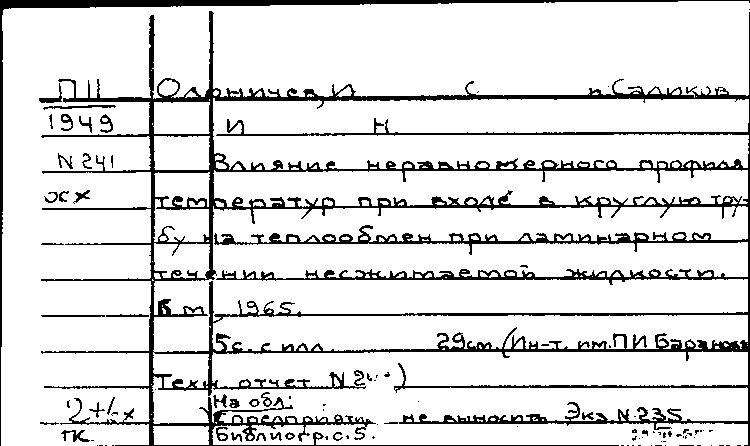 ПII Оларничев, И С и Саликов
1949 И Н.
N 241 Влияние неравномерного профиля
температур при входе в круглую тру-
бу на теплообмен при ламинарном
течении несжимаемой жидкости.
Б м, 1965.
5с. с илл. 29см. (Ин-т. им. ПИ Баранова
Техн. отчет N
На обл:
не выносить Экз. N 235.
ГК Библиогр. с. 5.